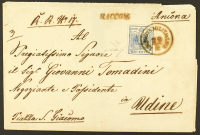 RACCOM.
Ancona
Al
Pregiatissimo Signore
il Sigr Giovanni Tomadini
Negoziante e Possidente
in Udine
Piazza S. Giacomo